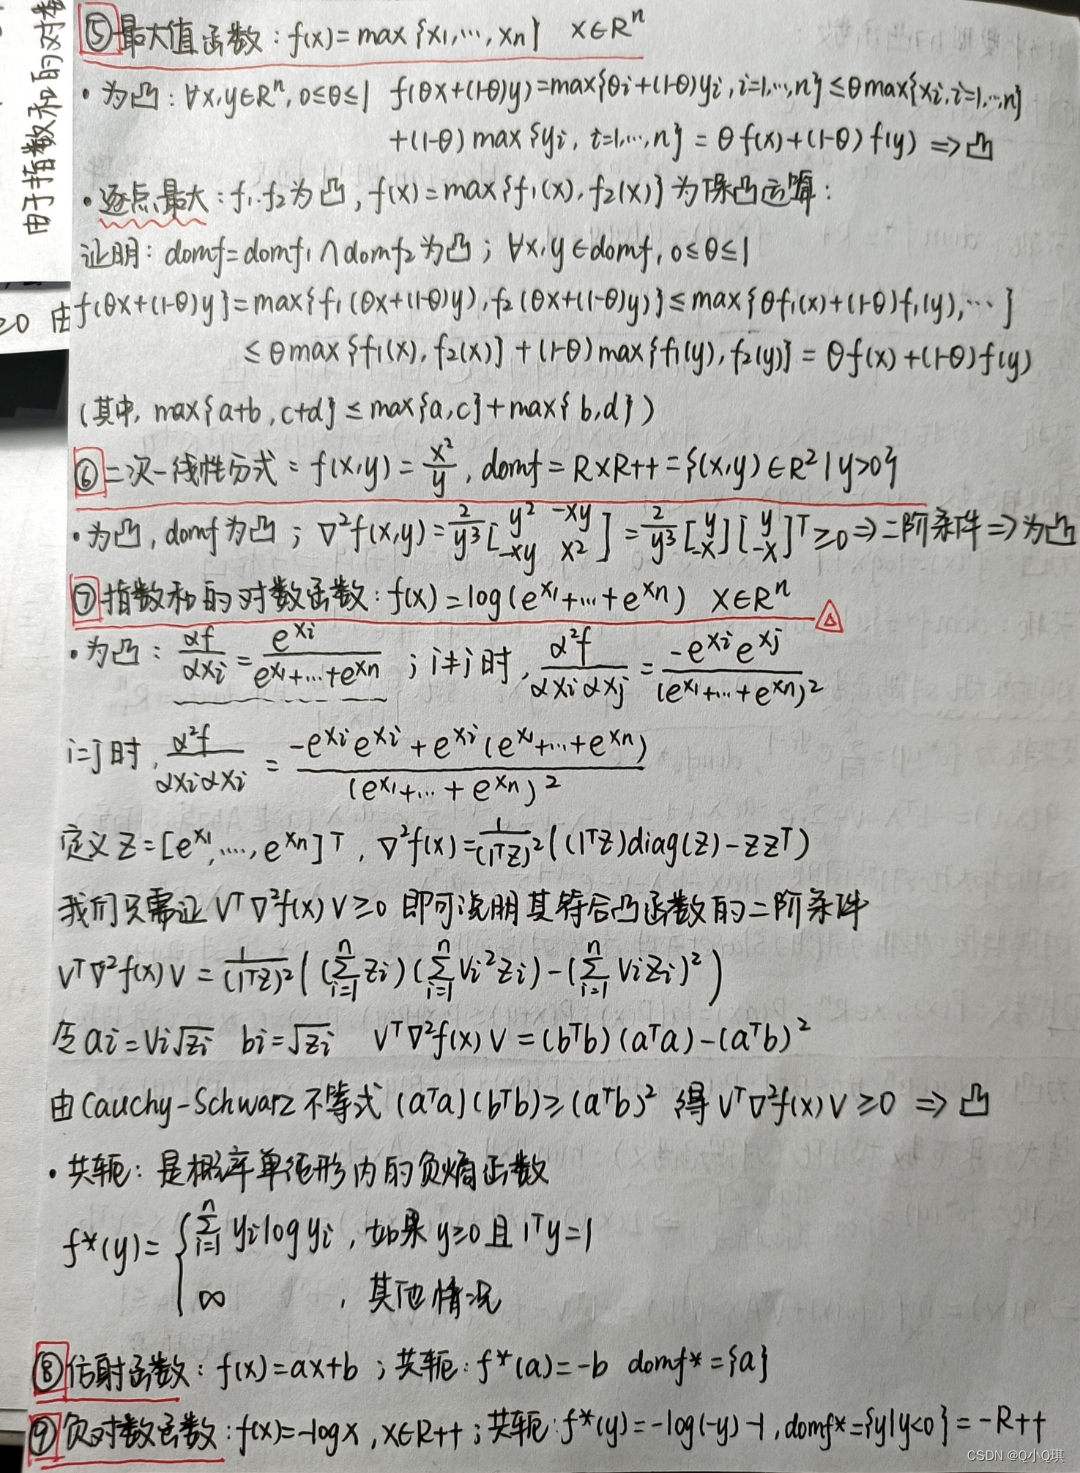 用于指数和的对数
≥0
⑤最大值函数：f(x)=max{x1,…,xn} x∈Rⁿ
·为凸：∀x,y∈Rⁿ, 0≤θ≤1 f(θx+(1-θ)y)=max{θi+(1-θ)yi, i=1,…,n}≤θmax{xi, i=1,…,n}
+(1-θ)max{yi, i=1,…,n}=θf(x)+(1-θ)f(y)⇒凸
·逐点最大：f1.f2为凸, f(x)=max{f1(x), f2(x)}为保凸运算：
证明：domf=domf1∩domf2为凸；∀x,y∈domf, 0≤θ≤1
由f(θx+(1-θ)y]=max{f1(θx+(1-θ)y), f2(θx+(1-θ)y)}≤max{θf1(x)+(1-θ)f1(y),…}
≤θmax{f1(x), f2(x)}+(1-θ)max{f1(y), f2(y)}=θf(x)+(1-θ)f(y)
(其中, max{a+b, c+d}≤max{a,c}+max{b,d})
⑥二次-线性分式：f(x,y)=x²/y, domf=R×R++={(x,y)∈R²|y>0}
·为凸, domf为凸；∇²f(x,y)=2/y³[y² -xy; -xy x²]=2/y³[y; -x][y; -x]ᵀ≥0⇒二阶条件⇒为凸
⑦指数和的对数函数：f(x)=log(e^x1+…+e^xn) x∈Rⁿ
·为凸：αf/αxi=e^xi/(e^x1+…+e^xn)；i≠j时, α²f/αxiαxj=-e^xi e^xj/(e^x1+…+e^xn)²
i=j时, α²f/αxiαxi=(-e^xi e^xi+e^xi(e^x1+…+e^xn))/(e^x1+…+e^xn)²
定义Z=[e^x1,…,e^xn]ᵀ, ∇²f(x)=1/(1ᵀZ)²((1ᵀZ)diag(Z)-ZZᵀ)
我们只需证Vᵀ∇²f(x)V≥0 即可说明其符合凸函数的二阶条件
Vᵀ∇²f(x)V=1/(1ᵀZ)²((∑ⁿᵢ₌₁Zi)(∑ⁿᵢ₌₁Vi²Zi)-(∑ⁿᵢ₌₁ViZi)²)
令ai=Vi√Zi bi=√Zi Vᵀ∇²f(x)V=(bᵀb)(aᵀa)-(aᵀb)²
由Cauchy-Schwarz不等式(aᵀa)(bᵀb)≥(aᵀb)² 得Vᵀ∇²f(x)V≥0⇒凸
·共轭：是概率单纯形内的负熵函数
f*(y)={∑ⁿᵢ₌₁yi log yi, 如果y≥0且1ᵀy=1
∞, 其他情况
⑧仿射函数：f(x)=ax+b；共轭：f*(a)=-b domf*={a}
⑨负对数函数：f(x)=-logx, x∈R++；共轭：f*(y)=-log(-y)-1, domf*={y|y<0}=-R++
CSDN @Q小Q琪